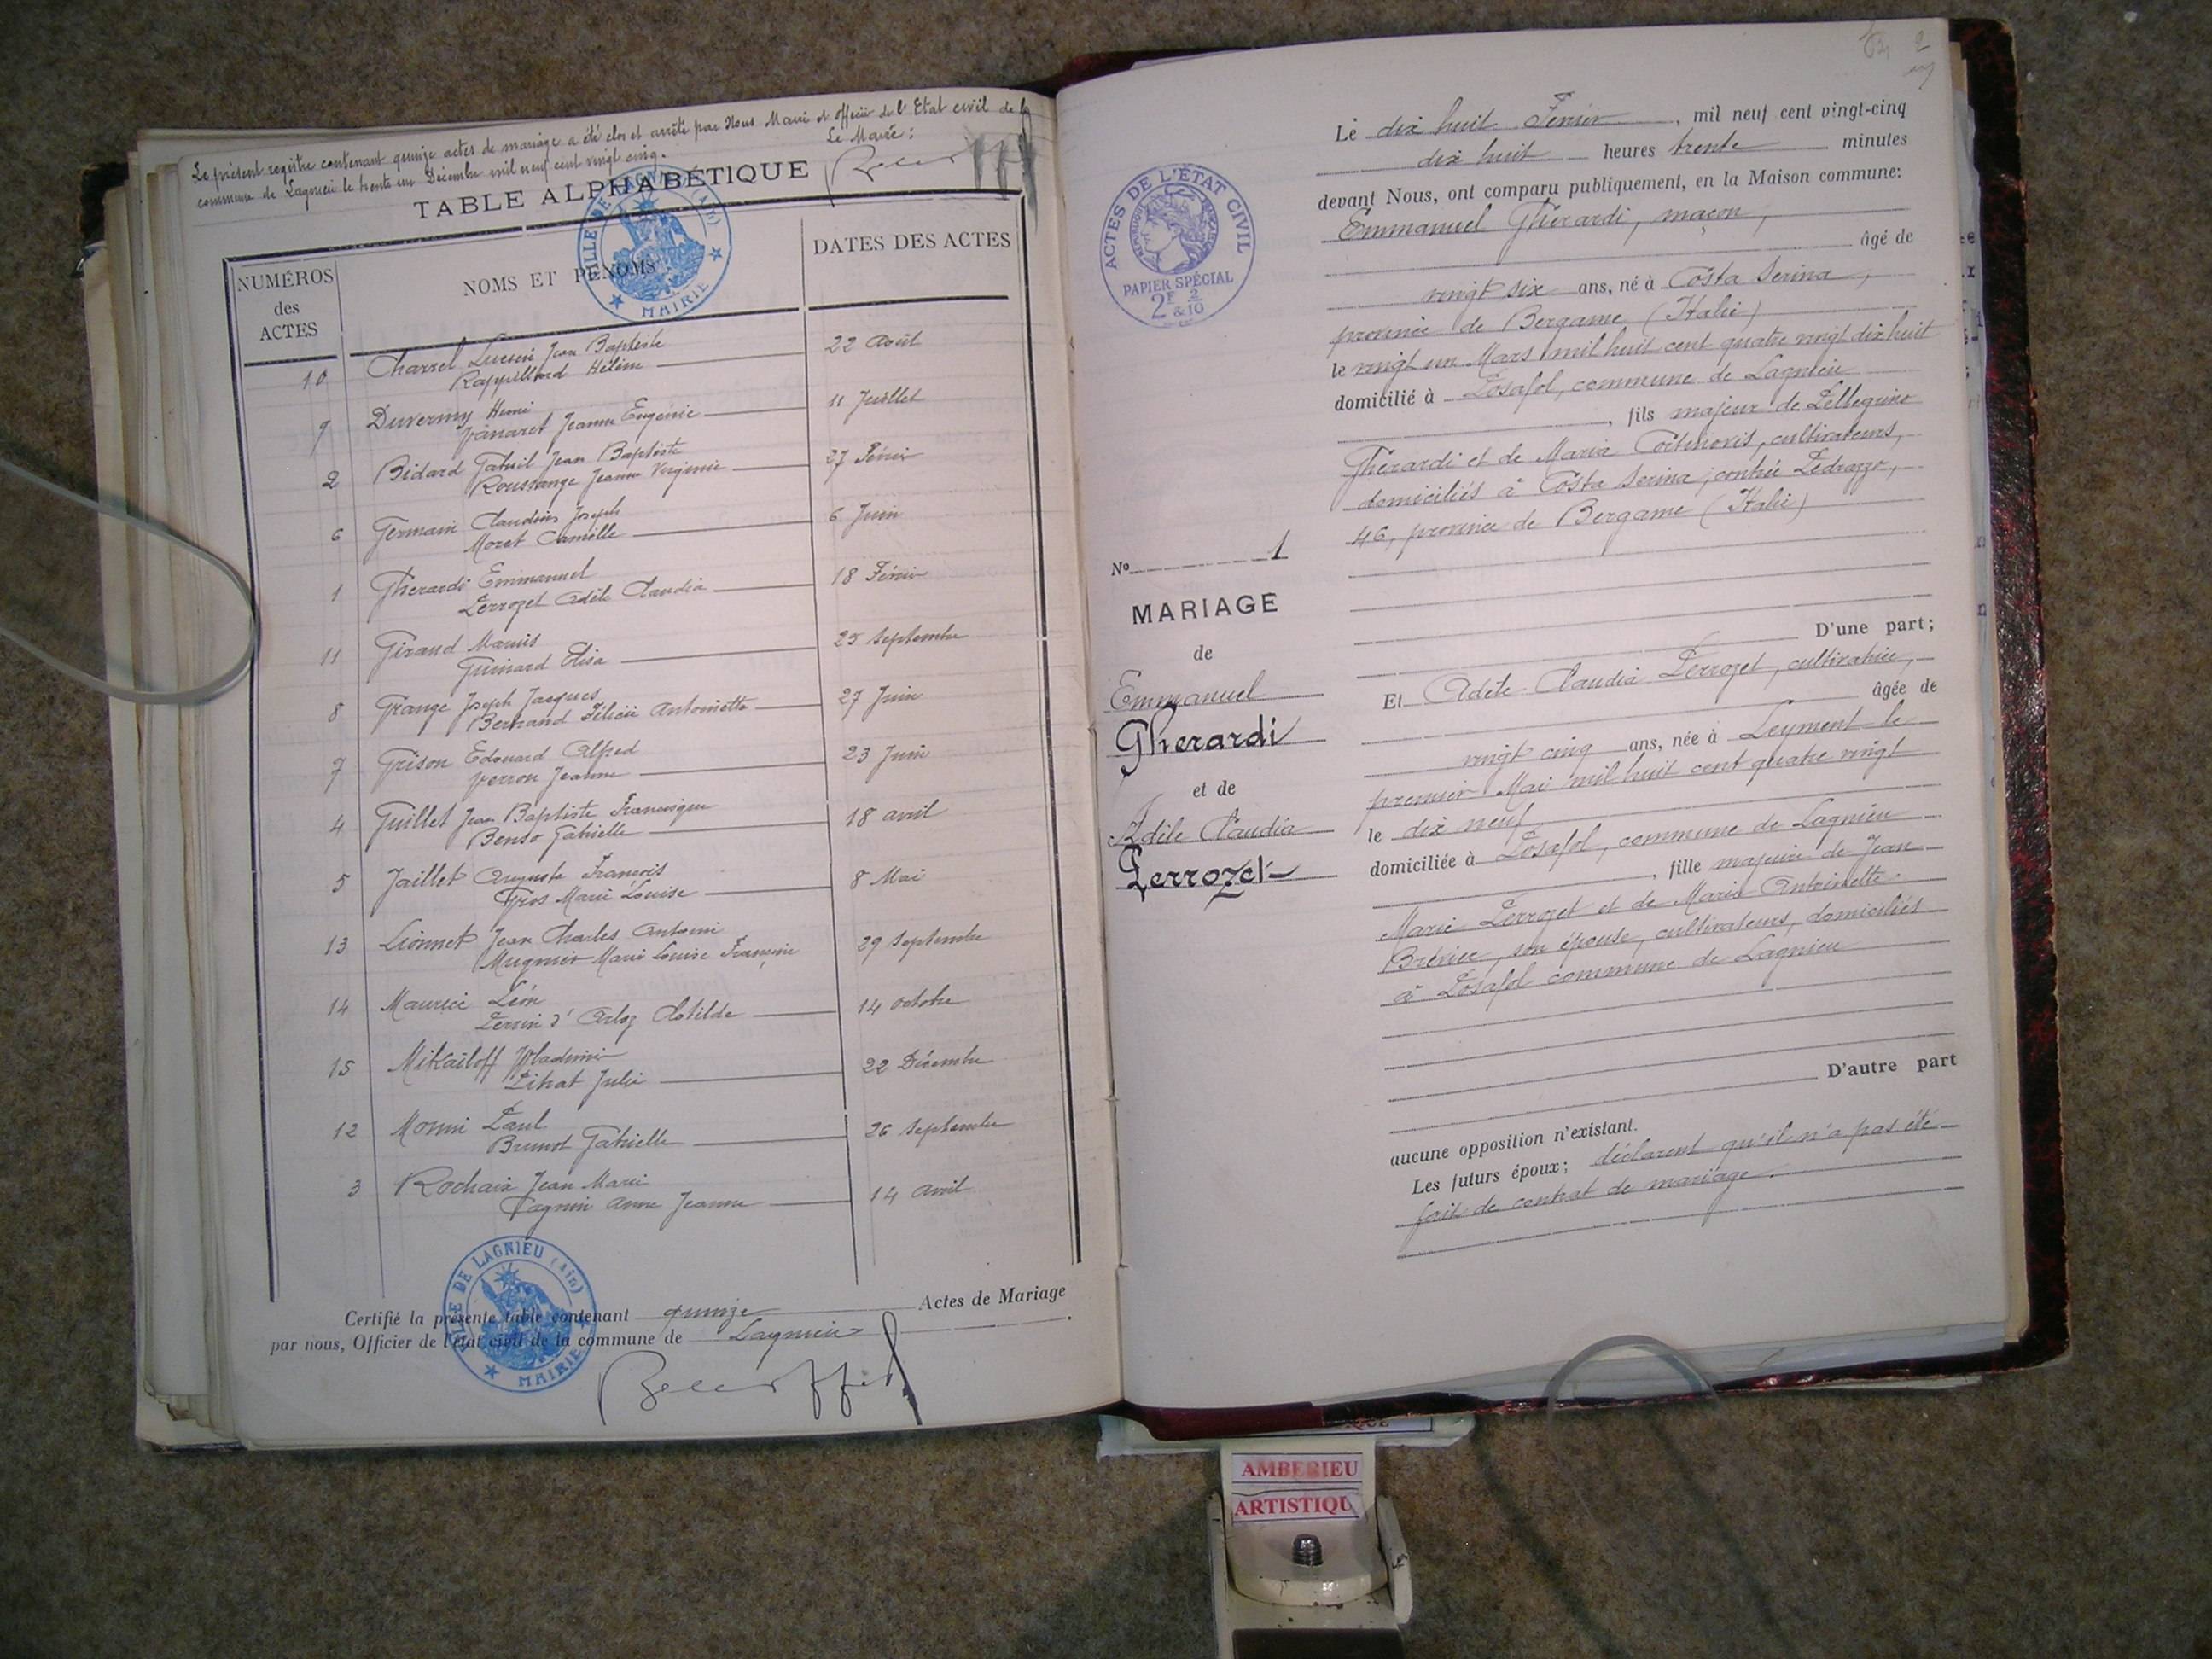 Le présent registre contenant quinze actes de mariage a été clos et arrêté par Nous Maire et officier de l'Etat civil de la
commune de Lagnieu le trente un Décembre mil neuf cent vingt cinq.
Le Maire:
TABLE ALPHABÉTIQUE
VILLE DE LAGNIEU (Ain)
MAIRIE
NUMÉROS des ACTES
NOMS ET PÉNOMS
DATES DES ACTES
10 Charrel Lucien Jean Baptiste 22 Août
Hélène
9 Duvernay Henri 11 Juillet
Vanaret Jeanne Eugénie
2 Bidard Gabriel Jean Baptiste 27 Février
Roussange Jeanne Virginie
6 Germain Claudius Joseph 6 Juin
Moret Camille
1 Gherardi Emmanuel 18 Février
Perrozet Adèle Claudia
11 Giraud Marius 25 Septembre
Guinard Elisa
8 Grange Joseph Jacques 27 Juin
Bernand Félicie Antoinette
7 Grison Edouard Alfred 23 Juin
Perron Jeanne
4 Guillet Jean Baptiste Francisque 18 avril
Benso Gabrielle
5 Jaillet Auguste François 8 Mai
Gros Marie Louise
13 Lionnet Jean Charles Antoine 29 Septembre
Mugnier Marie Louise Françine
14 Maurice Léon 14 Octobre
Perrin d' Arloz Clotilde
15 Mikaïloff Wladimir 22 Décembre
Pitrat Julie
12 Monin Paul 26 Septembre
Brunot Gabrielle
3 Rochaix Jean Marie 14 Avril
Pagnin Anne Jeanne
VILLE DE LAGNIEU (Ain)
MAIRIE
Certifié la présente table contenant quinze Actes de Mariage
par nous, Officier de l'état civil de la commune de Lagnieu.
2
ACTES DE L'ÉTAT CIVIL
RÉPUBLIQUE FRANÇAISE
PAPIER SPÉCIAL
2F & 2/10
No 1
MARIAGE
de
Emmanuel
Gherardi
et de
Adèle Claudia
Perrozet
Le dix huit Février, mil neuf cent vingt-cinq
dix huit heures trente minutes
devant Nous, ont comparu publiquement, en la Maison commune:
Emmanuel Gherardi, maçon,
âgé de
vingt six ans, né à Costa Serina,
province de Bergame (Italie)
le vingt un Mars mil huit cent quatre vingt dix huit
domicilié à Posafol, commune de Lagnieu
, fils majeur de Pellegrino
Gherardi et de Maria Cortinovis, cultivateurs,
domiciliés à Costa Serina, contrée Pedrozzo,
46, province de Bergame (Italie)
D'une part;
Et Adèle Claudia Perrozet, cultivatrice,
âgée de
vingt cinq ans, née à Leyment le
premier Mai mil huit cent quatre vingt
le dix neuf
domiciliée à Posafol, commune de Lagnieu
, fille majeure de Jean
Marie Perrozet et de Marie Antoinette
Brévier, son épouse, cultivateurs, domiciliés
à Posafol commune de Lagnieu
D'autre part
aucune opposition n'existant.
Les futurs époux; déclarent qu'il n'a pas été
fait de contrat de mariage.
AMBERIEU
ARTISTIQU